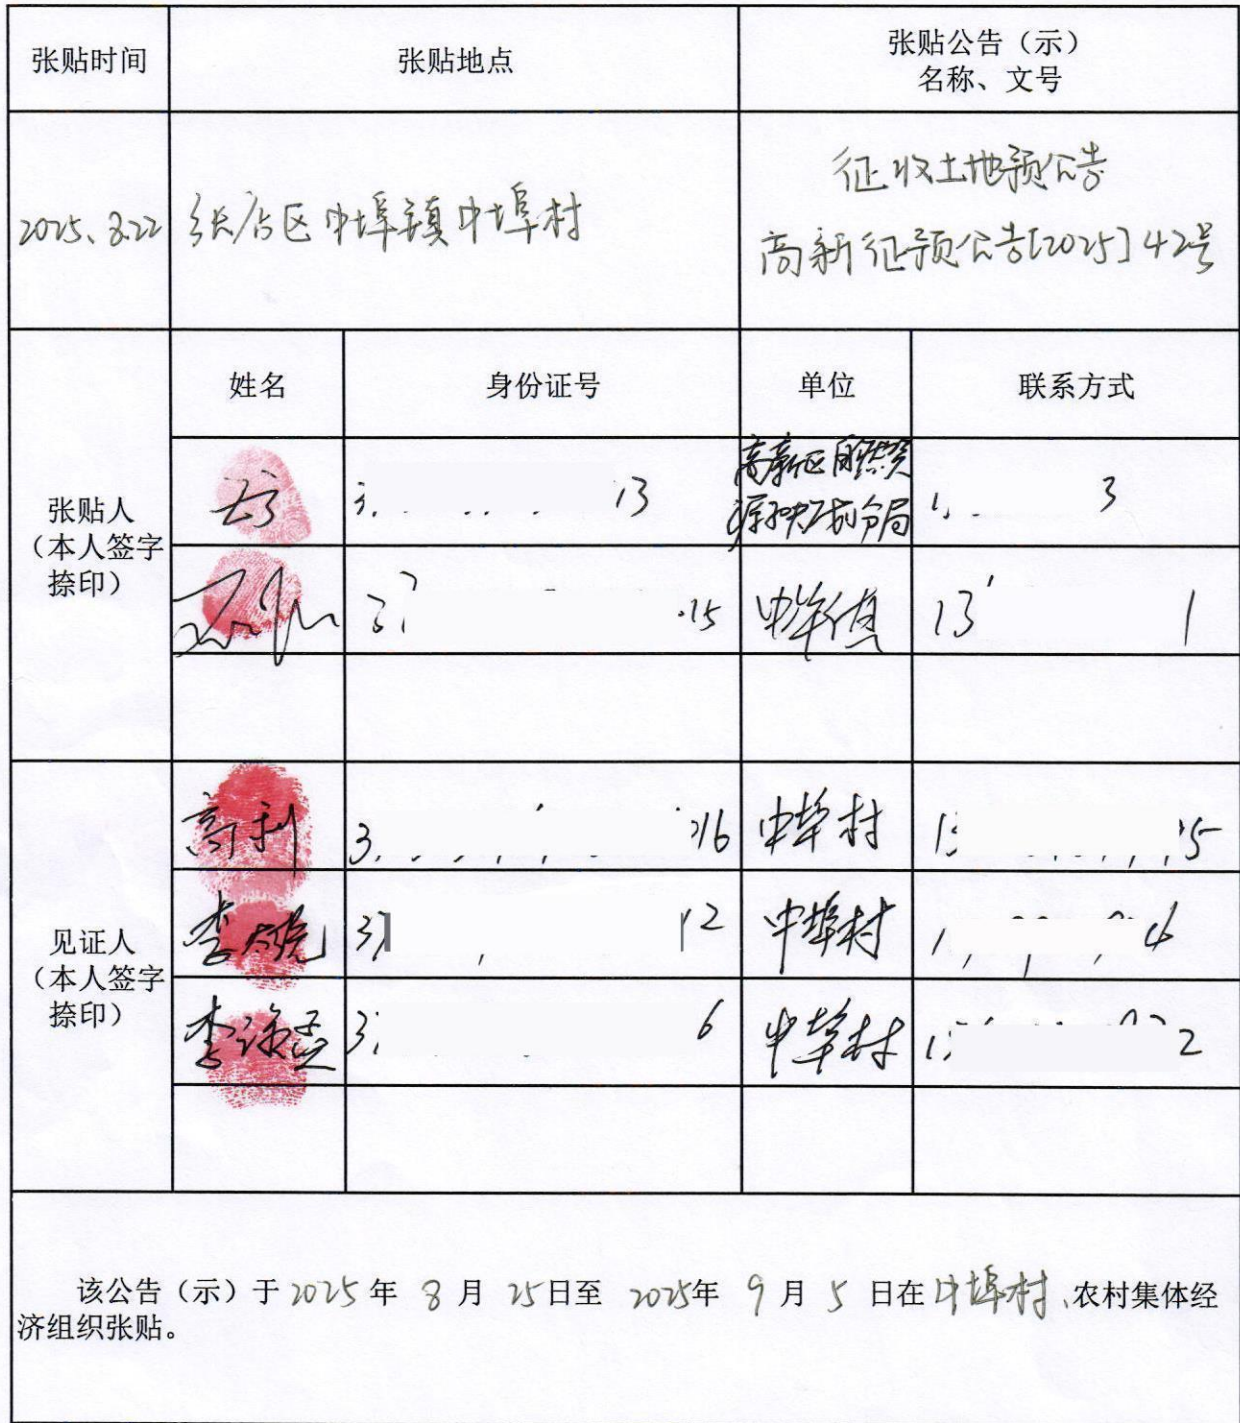 张贴时间
张贴地点
张贴公告（示）
名称、文号
2025、8.22
张店区中埠镇中埠村
征收土地预公告
高新征预公告[2025]42号
姓名
身份证号
单位
联系方式
张贴人
（本人签字
捺印）
高新区自然资
源和规划分局
13
3
15
13
1
见证人
（本人签字
捺印）
高利
3
16
中埠村
15
李
3
12
中埠村
1
4
李
3
6
中埠村
1
2
该公告（示）于2025年 8 月 25日至 2025年 9 月 5 日在中埠村、农村集体经
济组织张贴。